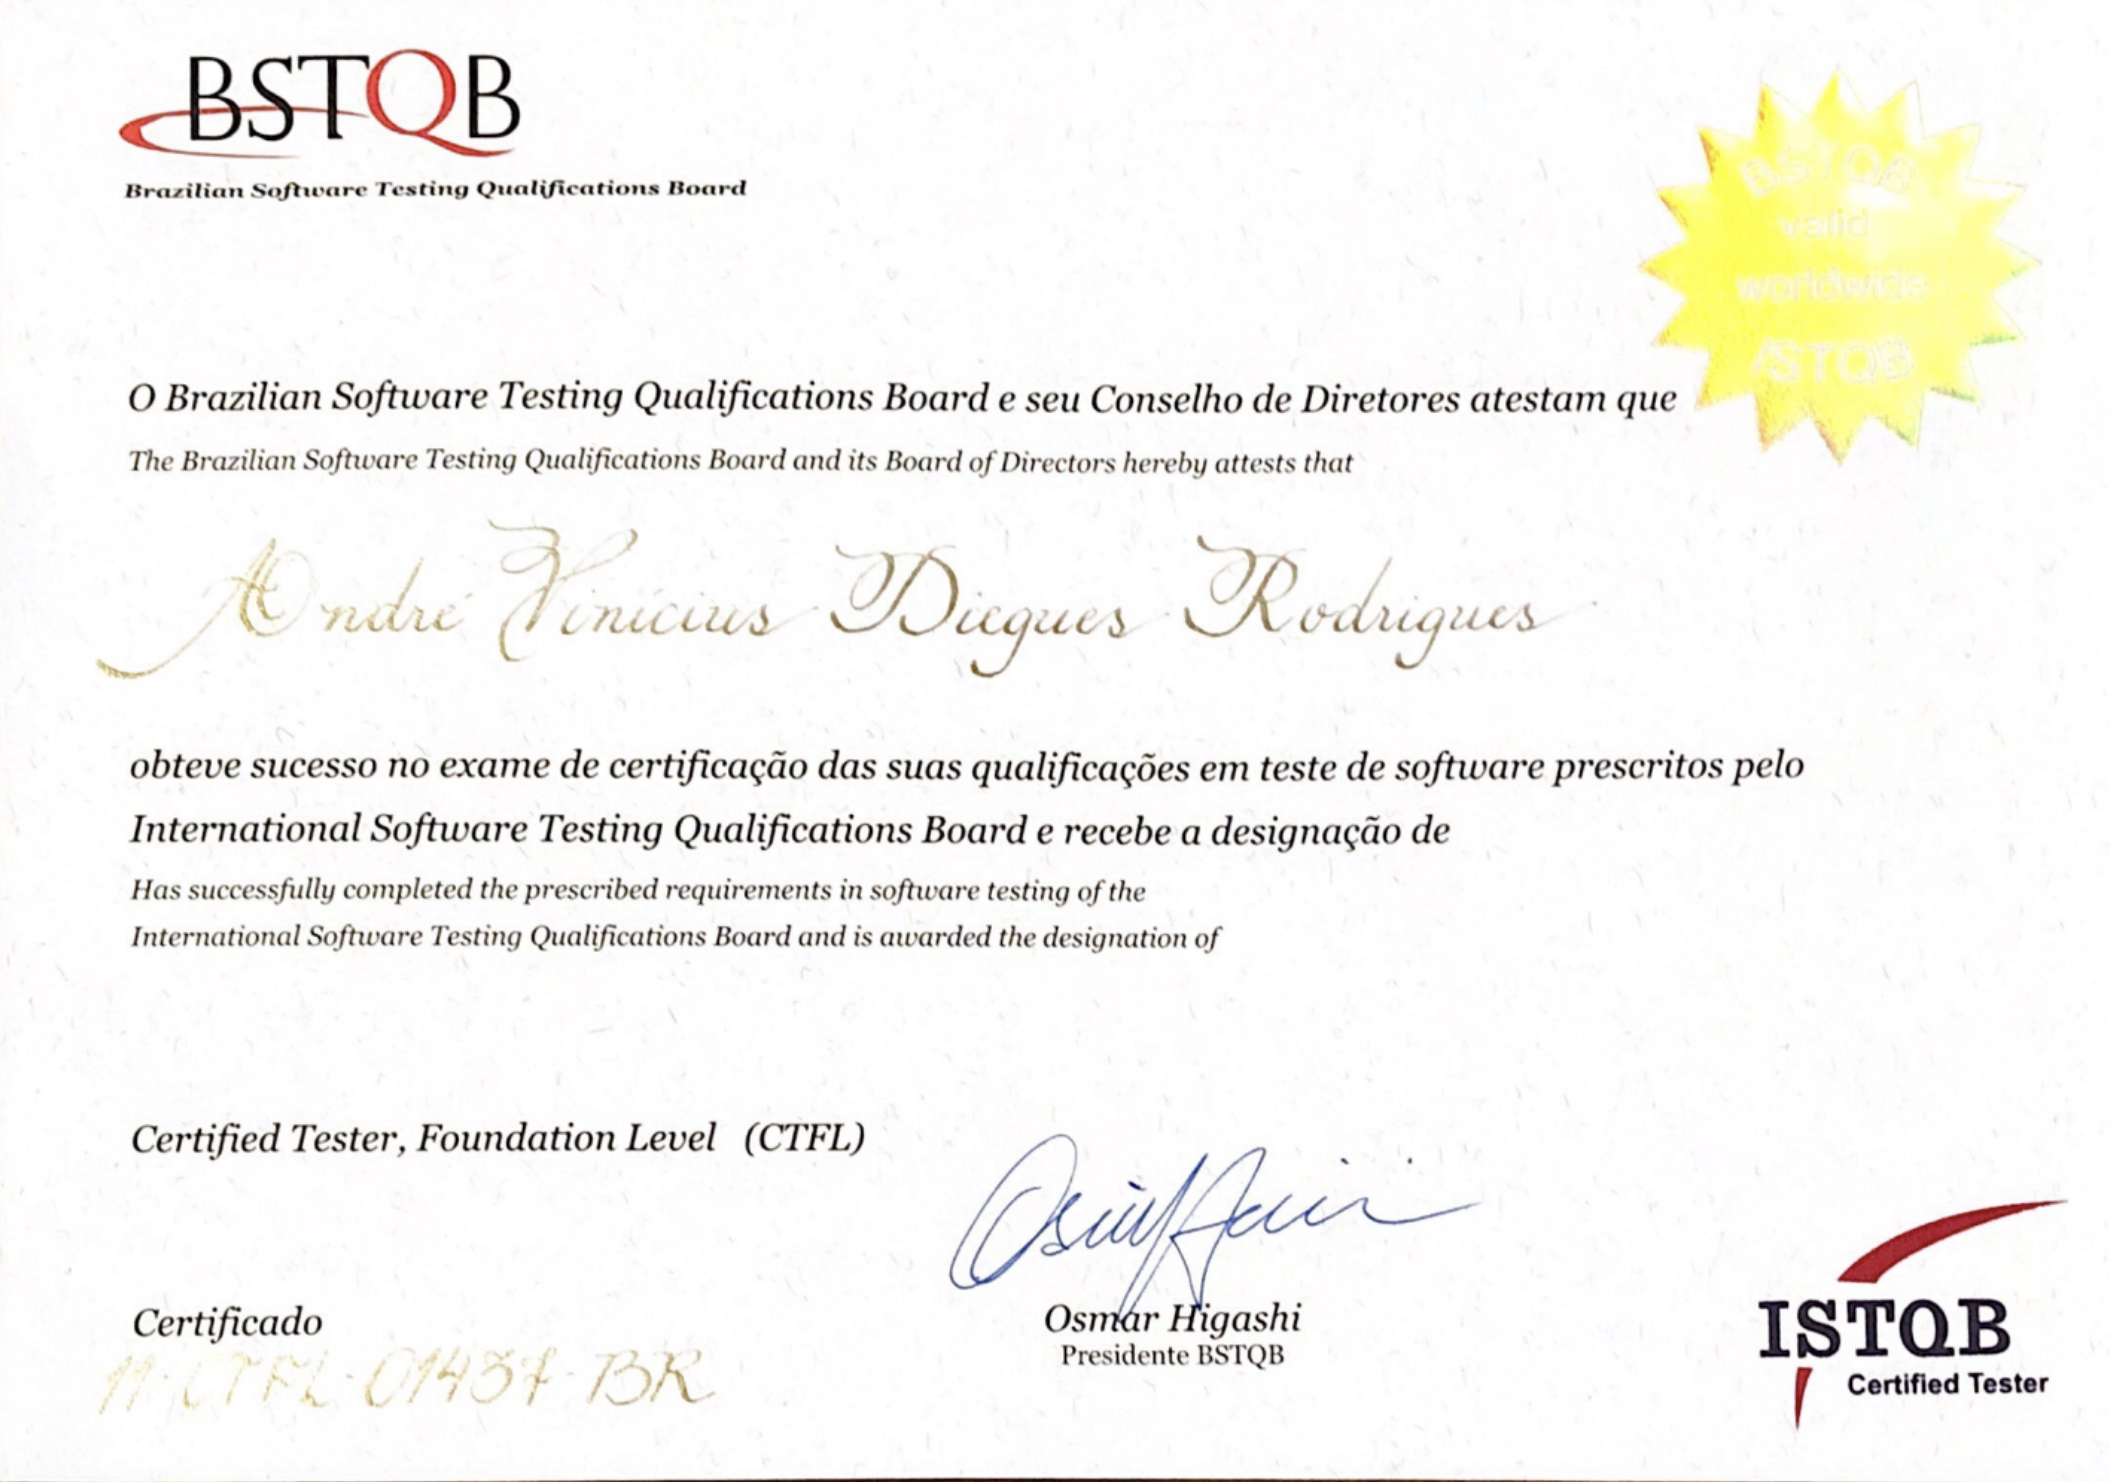 BSTQB
Brazilian Software Testing Qualifications Board
BSTQB
valid
worldwide
ISTQB
O Brazilian Software Testing Qualifications Board e seu Conselho de Diretores atestam que
The Brazilian Software Testing Qualifications Board and its Board of Directors hereby attests that
André Vinícius Diegues Rodrigues
obteve sucesso no exame de certificação das suas qualificações em teste de software prescritos pelo
International Software Testing Qualifications Board e recebe a designação de
Has successfully completed the prescribed requirements in software testing of the
International Software Testing Qualifications Board and is awarded the designation of
Certified Tester, Foundation Level (CTFL)
Certificado
11-CTFL-01437-BR
Osmar Higashi
Presidente BSTQB
ISTQB
Certified Tester